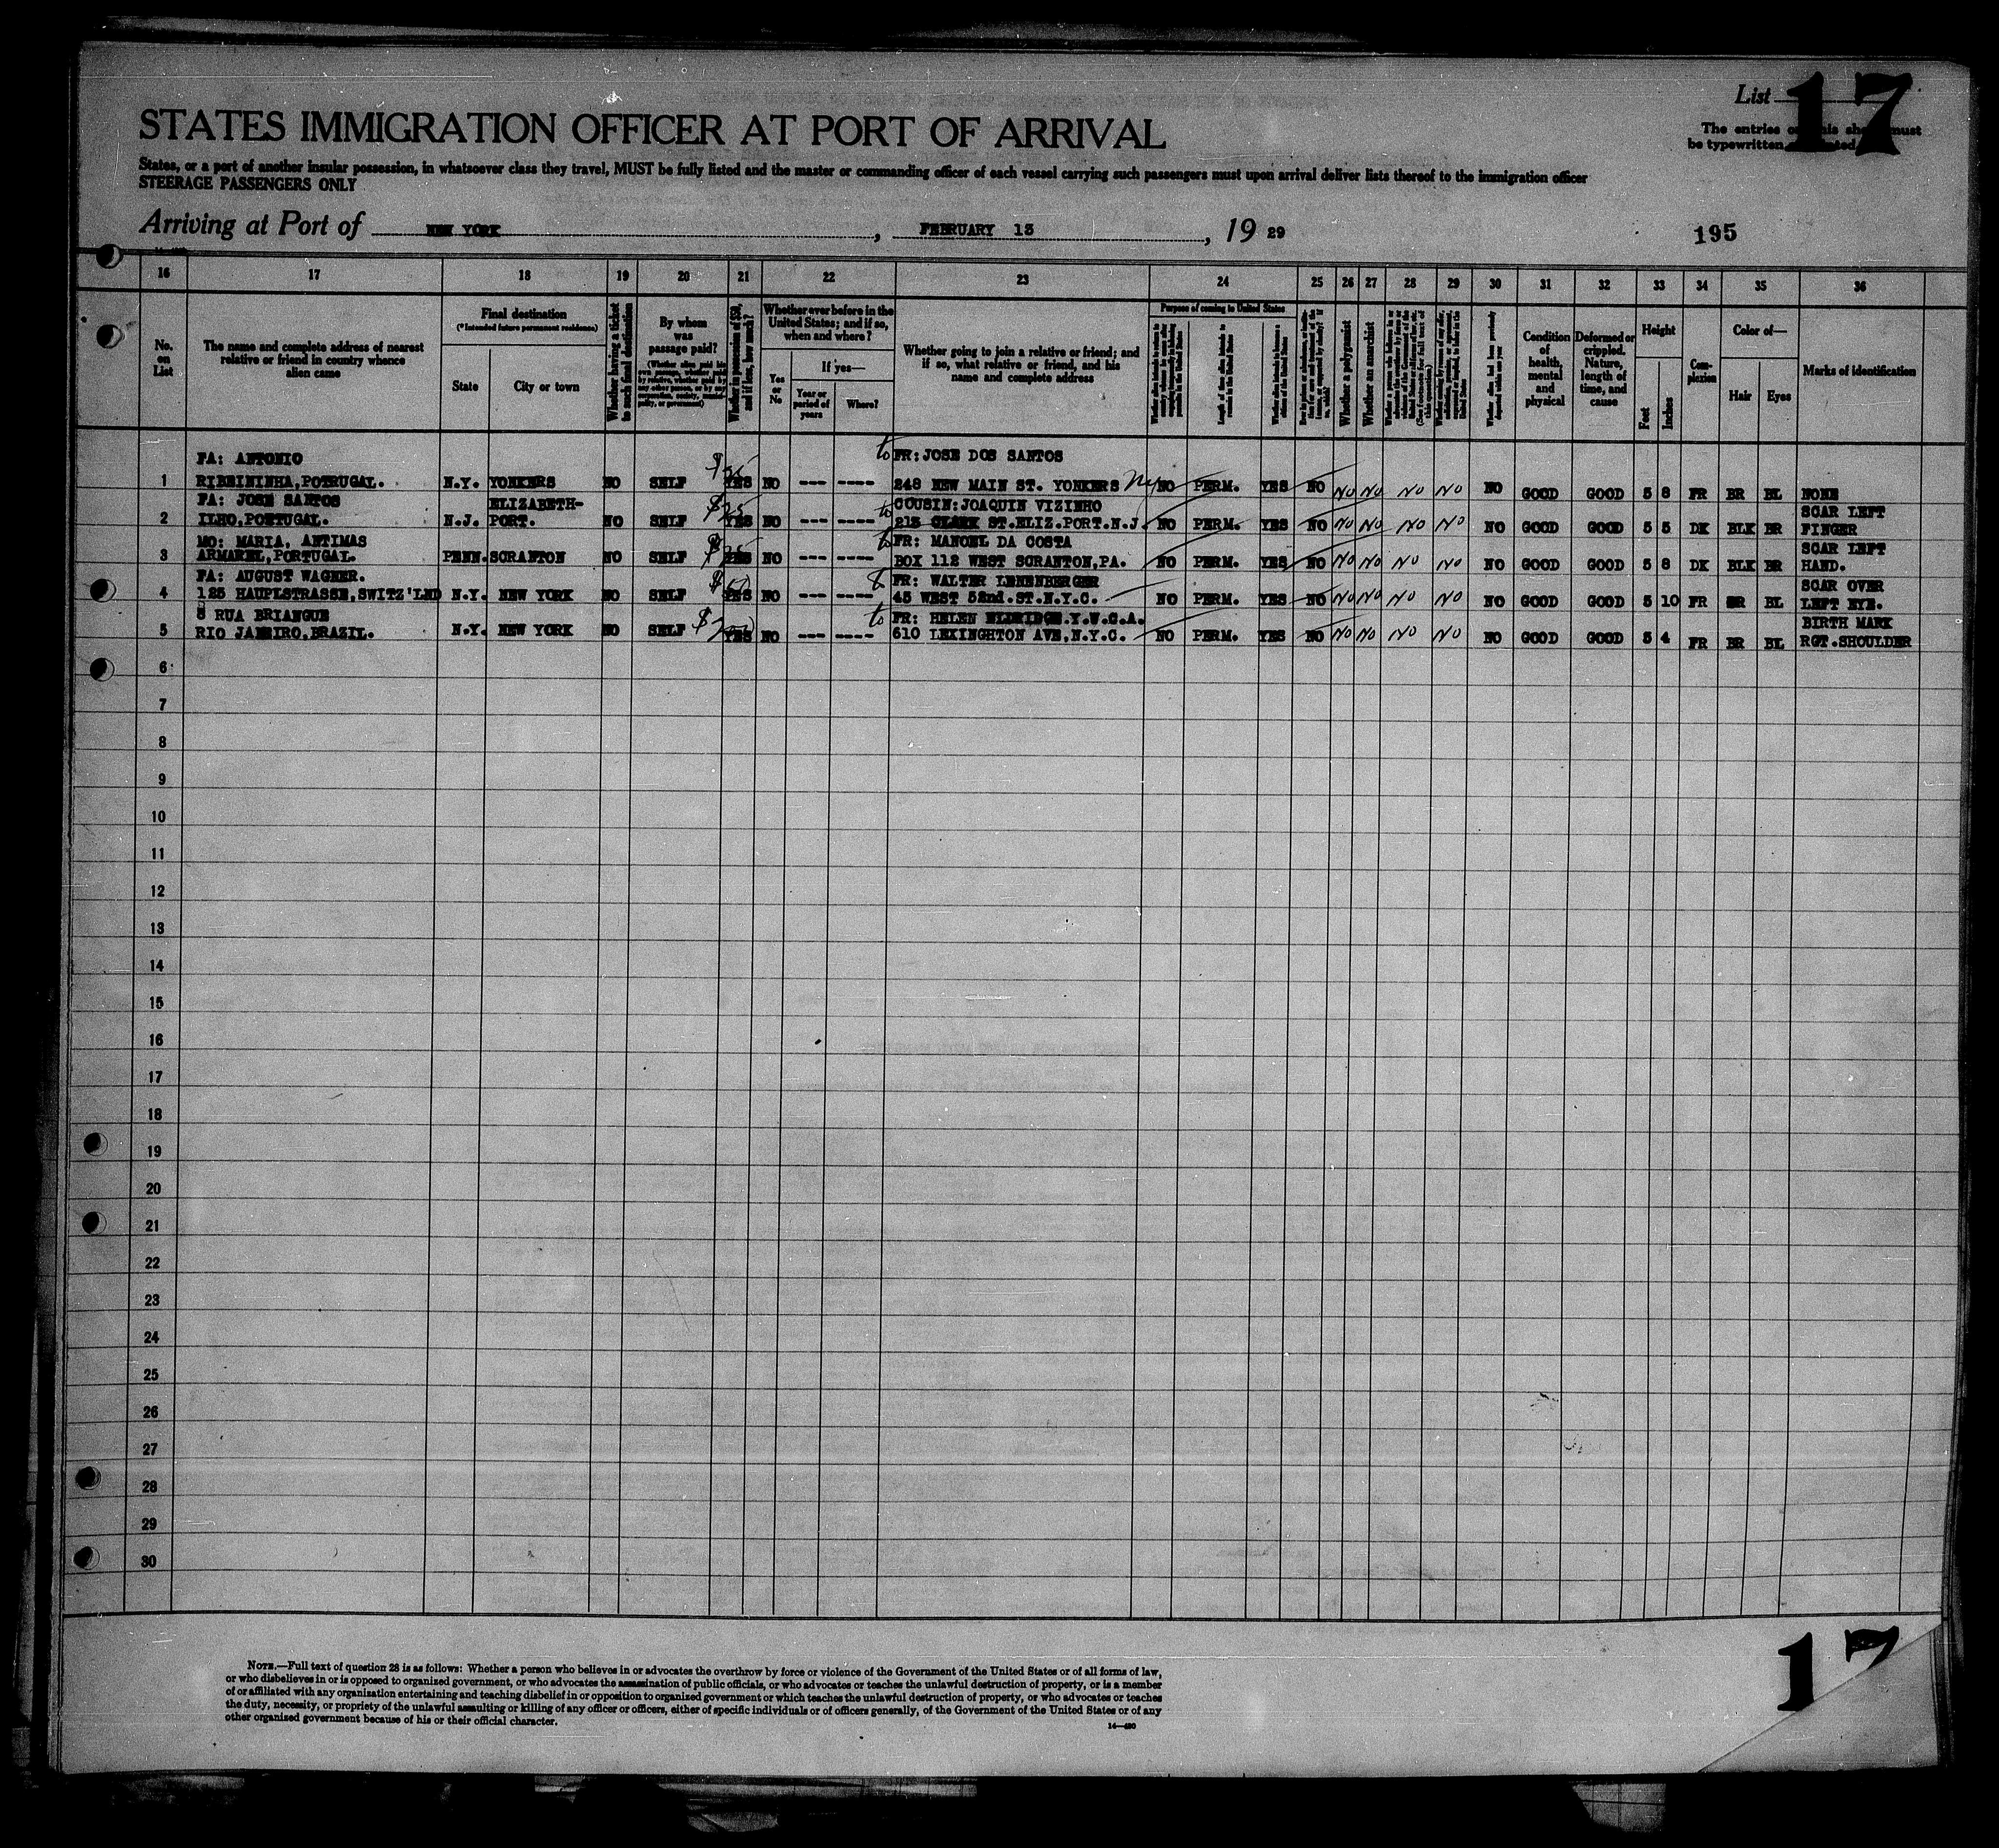 List 17
STATES IMMIGRATION OFFICER AT PORT OF ARRIVAL
The entries on this sheet must
be typewritten or printed
States, or a port of another insular possession, in whatsoever class they travel, MUST be fully listed and the master or commanding officer of each vessel carrying such passengers must upon arrival deliver lists thereof to the immigration officer
STEERAGE PASSENGERS ONLY
Arriving at Port of NEW YORK, FEBRUARY 13, 19 29 195
16 17 18 19 20 21 22 23 24 25 26 27 28 29 30 31 32 33 34 35 36
No. on List
The name and complete address of nearest relative or friend in country whence alien came
Final destination
(*Intended future permanent residence)
State
City or town
Whether having a ticket to such final destination
By whom was passage paid?
(Whether alien paid his own passage, whether paid by relative, whether paid by any other person, or by any corporation, society, municipality, or government)
Whether in possession of $50, and if less, how much?
Whether ever before in the United States; and if so, when and where?
Yes or No
If yes—
Year or period of years
Where?
Whether going to join a relative or friend; and if so, what relative or friend, and his name and complete address
Purpose of coming to United States
Length of time alien intends to remain in the United States
Whether a polygamist
Whether an anarchist
Condition of health, mental and physical
Deformed or crippled. Nature, length of time, and cause
Height
Feet
Inches
Complexion
Color of—
Hair
Eyes
Marks of identification
FA: ANTONIO to FR: JOSE DOS SANTOS
1 RIBEININHA, POTRUGAL. N.Y. YONKERS NO SELF $25 YES NO --- ---- 248 NEW MAIN ST. YONKERS NY NO PERM. YES NO No No No No NO GOOD GOOD 5 8 FR BR BL NONE
FA: JOSE SANTOS ELIZABETH- to COUSIN: JOAQUIN VIZINHO SCAR LEFT
2 ILHO, PORTUGAL. N.J. PORT. NO SELF $25 YES NO --- ---- 213 CLARK ST. ELIZ. PORT. N.J. NO PERM. YES NO No No No No NO GOOD GOOD 5 5 DK BLK BR FINGER
MO: MARIA, ANTIMAS to FR: MANOEL DA COSTA SCAR LEFT
3 ARMAREL, PORTUGAL. PENN. SCRANTON NO SELF $25 YES NO --- ---- BOX 112 WEST SCRANTON, PA. NO PERM. YES NO No No No No NO GOOD GOOD 5 8 DK BLK BR HAND.
FA: AUGUST WAGNER. to FR: WALTER LEHENBERGER SCAR OVER
4 125 HAUPLSTRASSE, SWITZ'LND N.Y. NEW YORK NO SELF $60 YES NO --- ---- 45 WEST 52nd. ST. N.Y.C. NO PERM. YES NO No No No No NO GOOD GOOD 5 10 FR BR BL LEFT EYE.
8 RUA BRIANGUE to FR: HELEN ELDRIDGE. Y.W.C.A. BIRTH MARK
5 RIO JANEIRO, BRAZIL. N.Y. NEW YORK NO SELF $200 YES NO --- ---- 610 LEXINGHTON AVE, N.Y.C. NO PERM. YES NO No No No No NO GOOD GOOD 5 4 FR BR BL RGT. SHOULDER
6
7
8
9
10
11
12
13
14
15
16
17
18
19
20
21
22
23
24
25
26
27
28
29
30
NOTE.—Full text of question 28 is as follows: Whether a person who believes in or advocates the overthrow by force or violence of the Government of the United States or of all forms of law,
or who disbelieves in or is opposed to organized government, or who advocates the assassination of public officials, or who advocates or teaches the unlawful destruction of property, or is a member
of or affiliated with any organization entertaining and teaching disbelief in or opposition to organized government or which teaches the unlawful destruction of property, or who advocates or teaches
the duty, necessity, or propriety of the unlawful assaulting or killing of any officer or officers, either of specific individuals or of officers generally, of the Government of the United States or of any
other organized government because of his or their official character.
14—490
17